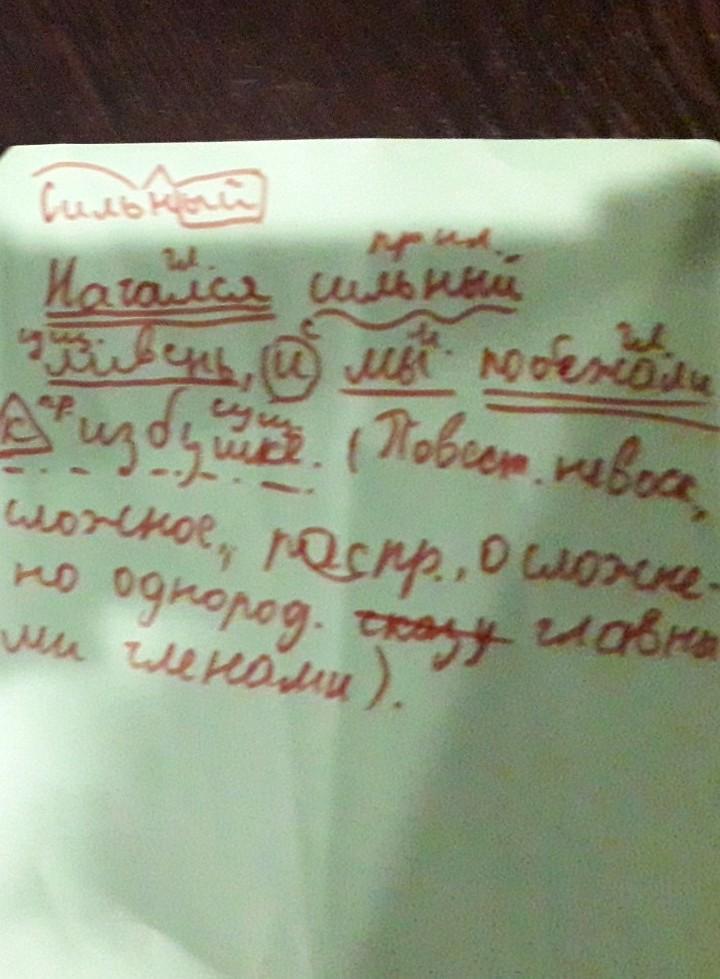 сильный
гл. прил.
Начался сильный
сущ. с м. гл.
ливень, и мы побежали
пр. сущ.
к избушке. (Повест. невоск,
сложное, распр., осложне-
но однород. сказу главны
ми членами).